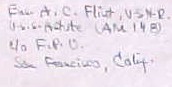 Ens A. C. Flint, U.S.N.R.
U.S.S. Astute (AM 148)
c/o F.P.O.
San Francisco, Calif.